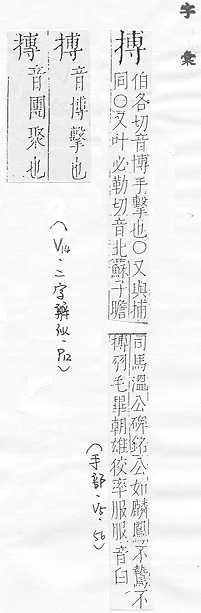 字彙
搏
伯各切音博手擊也○又與捕
同○又叶必勒切音北蘇子瞻
司馬溫公碑銘公如麟鳳不鷙不
搏羽毛畢朝雄狡率服服音白
(手部、V5、56)
搏音博擊也
摶音團聚也
(V14、二字辨似、P12)